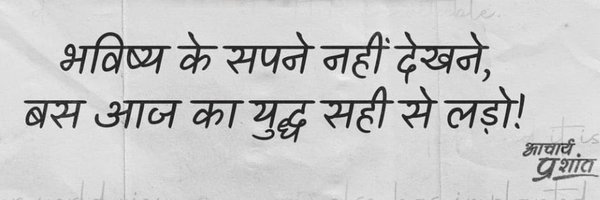 भविष्य के सपने नहीं देखने,
बस आज का युद्ध सही से लड़ो!
आचार्य
प्रशांत